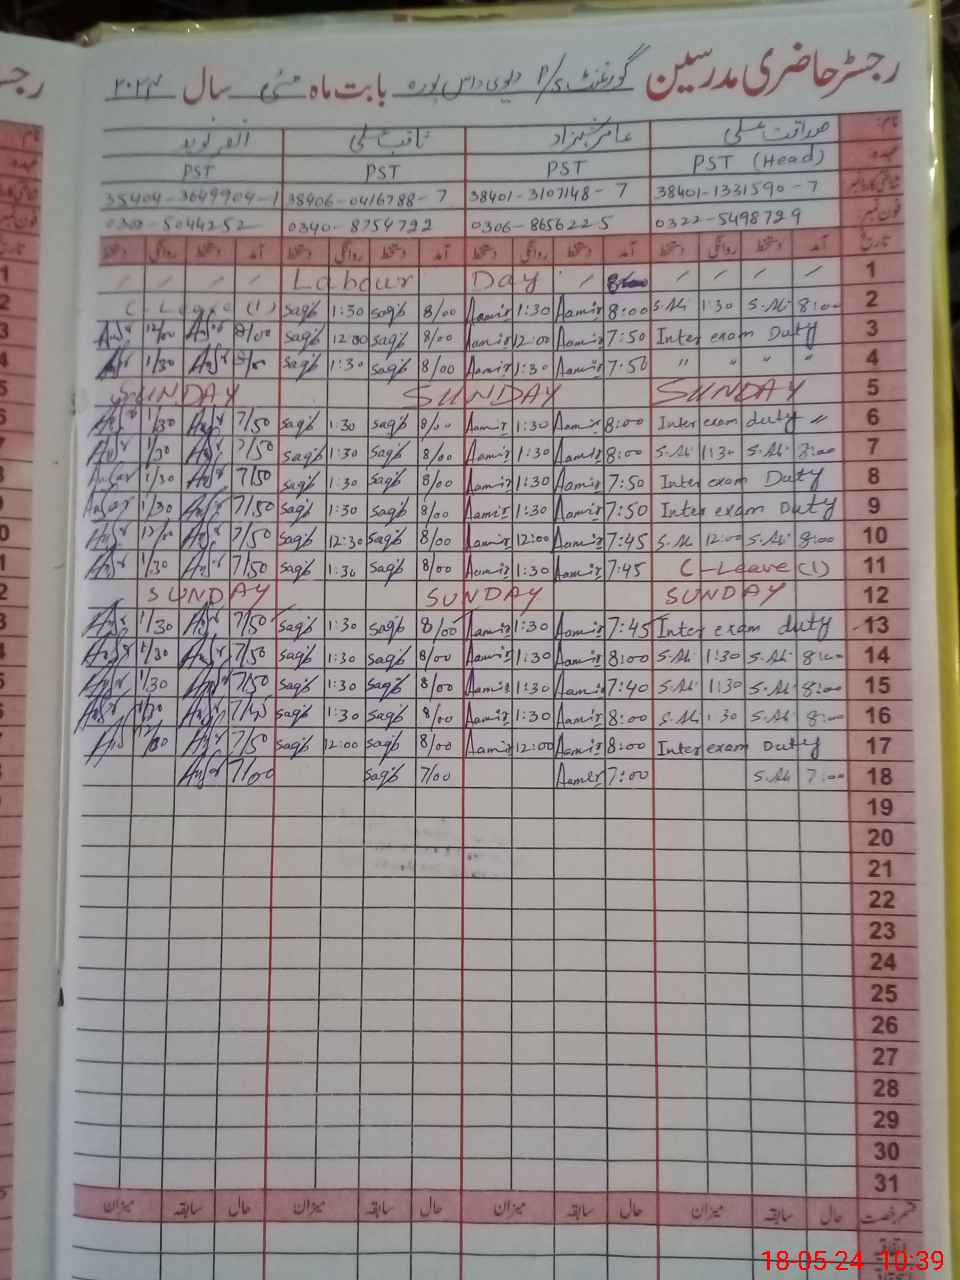 رجسٹر حاضری مدرسین گورنمنٹ P/S دیوی داس پورہ بابت ماہ مئی سال ۲۰۲۴
نام: صداقت علی عامر شہزاد ثاقب علی
عہدہ PST (Head) PST PST PST
38401-1331590-7 38401-3107148-7 38406-0416788-7 35404-3649904-1
فون نمبر 0322-5498729 0306-8656225 0340-8754792 0302-5044252
تاریخ آمد دستخط روانگی دستخط آمد دستخط روانگی دستخط آمد دستخط روانگی دستخط آمد دستخط روانگی دستخط
Labour Day 1
C. Leave (1) Saqib 1:30 Saqib 8/00 Aamir 1:30 Aamir 8:00 S.Ali 1:30 S.Ali 8:00 2
12/00 8/00 Saqib 12:00 Saqib 8/00 Aamir 12:00 Aamir 7:50 Inter exam Duty 3
1/30 Saqib 1:30 Saqib 8/00 Aamir 1:30 Aamir 7:50 " " " " 4
SUNDAY SUNDAY SUNDAY 5
1/30 7/50 Saqib 1:30 Saqib 8/00 Aamir 1:30 Aamir 8:00 Inter exam duty " 6
1/30 7/50 Saqib 1:30 Saqib 8/00 Aamir 1:30 Aamir 8:00 S.Ali 1:30 S.Ali 8:00 7
1/30 7/50 Saqib 1:30 Saqib 8/00 Aamir 1:30 Aamir 7:50 Inter exam Duty 8
1/30 7/50 Saqib 1:30 Saqib 8/00 Aamir 1:30 Aamir 7:50 Inter exam Duty 9
12/00 7/50 Saqib 12:30 Saqib 8/00 Aamir 12:00 Aamir 7:45 S.Ali 12:00 S.Ali 8:00 10
1/30 7/50 Saqib 1:30 Saqib 8/00 Aamir 1:30 Aamir 7:45 C-Leave (1) 11
SUNDAY SUNDAY SUNDAY 12
1/30 7/50 Saqib 1:30 Saqib 8/00 Aamir 1:30 Aamir 7:45 Inter exam duty 13
1/30 7/50 Saqib 1:30 Saqib 8/00 Aamir 1:30 Aamir 8:00 S.Ali 1:30 S.Ali 8:00 14
1/30 7/50 Saqib 1:30 Saqib 8/00 Aamir 1:30 Aamir 7:40 S.Ali 1:30 S.Ali 8:00 15
1/30 7/45 Saqib 1:30 Saqib 8/00 Aamir 1:30 Aamir 8:00 S.Ali 1:30 S.Ali 8:00 16
7/50 Saqib 12:00 Saqib 8/00 Aamir 12:00 Aamir 8:00 Inter exam Duty 17
7/00 Saqib 7/00 Aamir 7:00 S.Ali 7:00 18
19
20
21
22
23
24
25
26
27
28
29
30
31
قسم رخصت حال سابقہ میزان حال سابقہ میزان حال سابقہ میزان حال سابقہ میزان
اتفاقیہ
18-05-24 10:39